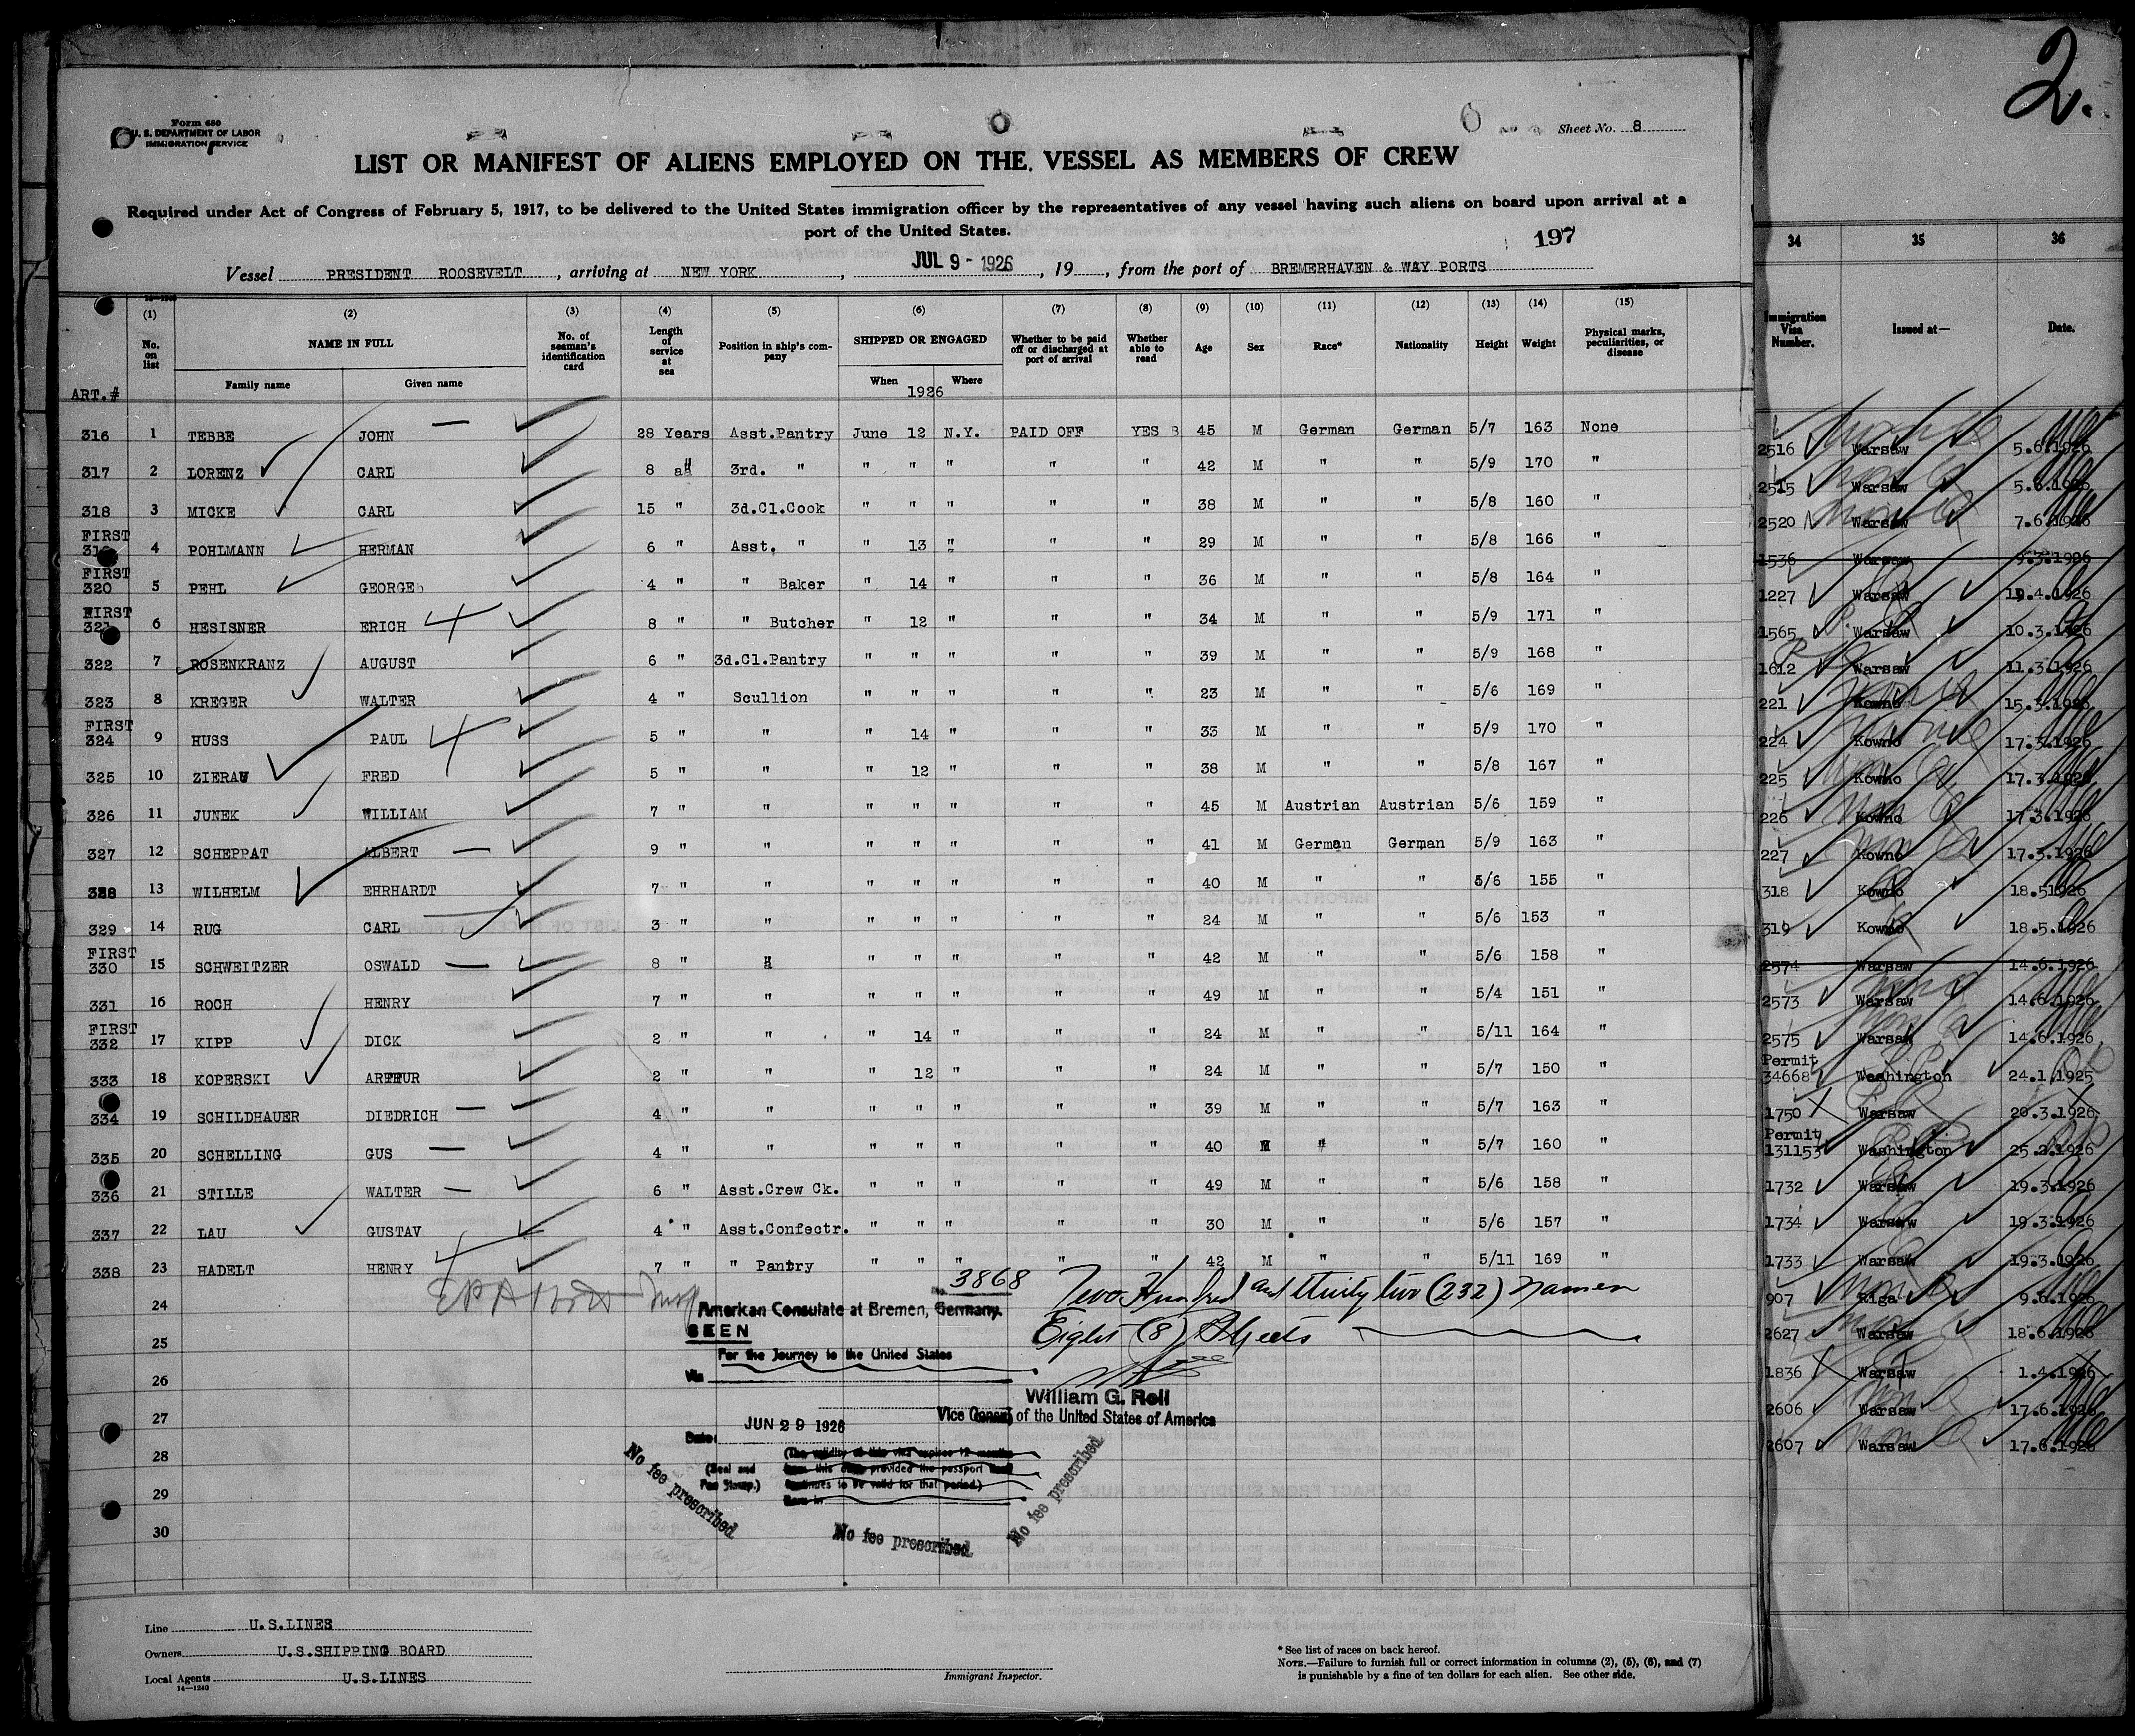 2.
Form 680
U. S. DEPARTMENT OF LABOR
IMMIGRATION SERVICE
Sheet No. 8
LIST OR MANIFEST OF ALIENS EMPLOYED ON THE VESSEL AS MEMBERS OF CREW
Required under Act of Congress of February 5, 1917, to be delivered to the United States immigration officer by the representatives of any vessel having such aliens on board upon arrival at a
port of the United States.
197
Vessel PRESIDENT ROOSEVELT, arriving at NEW YORK, JUL 9 - 1926, 19, from the port of BREMERHAVEN & WAY PORTS
(1) (2) (3) (4) (5) (6) (7) (8) (9) (10) (11) (12) (13) (14) (15)
No. on list NAME IN FULL No. of seaman's identification card Length of service at sea Position in ship's company SHIPPED OR ENGAGED Whether to be paid off or discharged at port of arrival Whether able to read Age Sex Race* Nationality Height Weight Physical marks, peculiarities, or disease
Family name Given name When Where
ART.# 1926
316 1 TEBBE JOHN 28 Years Asst.Pantry June 12 N.Y. PAID OFF YES 45 M German German 5/7 163 None
317 2 LORENZ CARL 8 3rd. " " " " " " 42 M " " 5/9 170 "
318 3 MICKE CARL 15 " 3d.Cl.Cook " " " " " 38 M " " 5/8 160 "
FIRST
319 4 POHLMANN HERMAN 6 " Asst. " " 13 " " " 29 M " " 5/8 166 "
FIRST
320 5 PEHL GEORGE 4 " " Baker " 14 " " " 36 M " " 5/8 164 "
FIRST
321 6 HESISNER ERICH 8 " " Butcher " 12 " " " 34 M " " 5/9 171 "
322 7 ROSENKRANZ AUGUST 6 " 3d.Cl.Pantry " " " " " 39 M " " 5/9 168 "
323 8 KREGER WALTER 4 " Scullion " " " " " 23 M " " 5/6 169 "
FIRST
324 9 HUSS PAUL 5 " " " 14 " " " 33 M " " 5/9 170 "
325 10 ZIERAU FRED 5 " " " 12 " " " 38 M " " 5/8 167 "
326 11 JUNEK WILLIAM 7 " " " " " " " 45 M Austrian Austrian 5/6 159 "
327 12 SCHEPPAT ALBERT 9 " " " " " " " 41 M German German 5/9 163 "
328 13 WILHELM EHRHARDT 7 " " " " " " " 40 M " " 5/6 155 "
329 14 RUG CARL 3 " " " " " " " 24 M " " 5/6 153 "
FIRST
330 15 SCHWEITZER OSWALD 8 " " " " " " " 42 M " " 5/6 158 "
331 16 ROCH HENRY 7 " " " " " " " 49 M " " 5/4 151 "
FIRST
332 17 KIPP DICK 2 " " " 14 " " " 24 M " " 5/11 164 "
333 18 KOPERSKI ARTHUR 2 " " " 12 " " " 24 M " " 5/7 150 "
334 19 SCHILDHAUER DIEDRICH 4 " " " " " " " 39 M " " 5/7 163 "
335 20 SCHELLING GUS 4 " " " " " " " 40 M " " 5/7 160 "
336 21 STILLE WALTER 6 " Asst.Crew Ck. " " " " " 49 M " " 5/6 158 "
337 22 LAU GUSTAV 4 " Asst.Confectr. " " " " " 30 M " " 5/6 157 "
338 23 HADELT HENRY 7 " " Pantry " " " " " 42 M " " 5/11 169 "
24
25
26
27
28
29
30
3868 Two Hundred and thirty two (232) Names
Eight (8) Sheets
American Consulate at Bremen, Germany.
SEEN
For the Journey to the United States
Via
William G. Roll
Vice Consul of the United States of America
JUN 29 1926
Date:
(The validity of this visa expires 12 months
from this date provided the passport
continues to be valid for that period.)
(Seal and
Fee Stamp.)
No fee prescribed
No fee prescribed
No fee prescribed
Line U.S.LINES
Owners U.S.SHIPPING BOARD
Local Agents U.S.LINES
14—1240
Immigrant Inspector.
* See list of races on back hereof.
NOTE.—Failure to furnish full or correct information in columns (2), (5), (6), and (7)
is punishable by a fine of ten dollars for each alien. See other side.
34 35 36
Immigration Visa Number. Issued at— Date.
2516 Warsaw 5.6.1926
2515 Warsaw 5.6.1926
2520 Warsaw 7.6.1926
1536 Warsaw 9.3.1926
1227 Warsaw 19.4.1926
1565 Warsaw 10.3.1926
1612 Warsaw 11.3.1926
221 Kowno 15.3.1926
224 Kowno 17.3.1926
225 Kowno 17.3.1926
226 Kowno 17.3.1926
227 Kowno 17.3.1926
318 Kowno 18.51926
319 Kowno 18.5.1926
2574 Warsaw 14.6.1926
2573 Warsaw 14.6.1926
2575 Warsaw 14.6.1926
Permit
34668 Washington 24.1.1925
1750 Warsaw 20.3.1926
Permit
131153 Washington 25.2.1926
1732 Warsaw 19.3.1926
1734 Warsaw 19.3.1926
1733 Warsaw 19.3.1926
907 Riga 9.6.1926
2627 Warsaw 18.6.1926
1836 Warsaw 1.4.1926
2606 Warsaw 17.6.1926
2607 Warsaw 17.6.1926